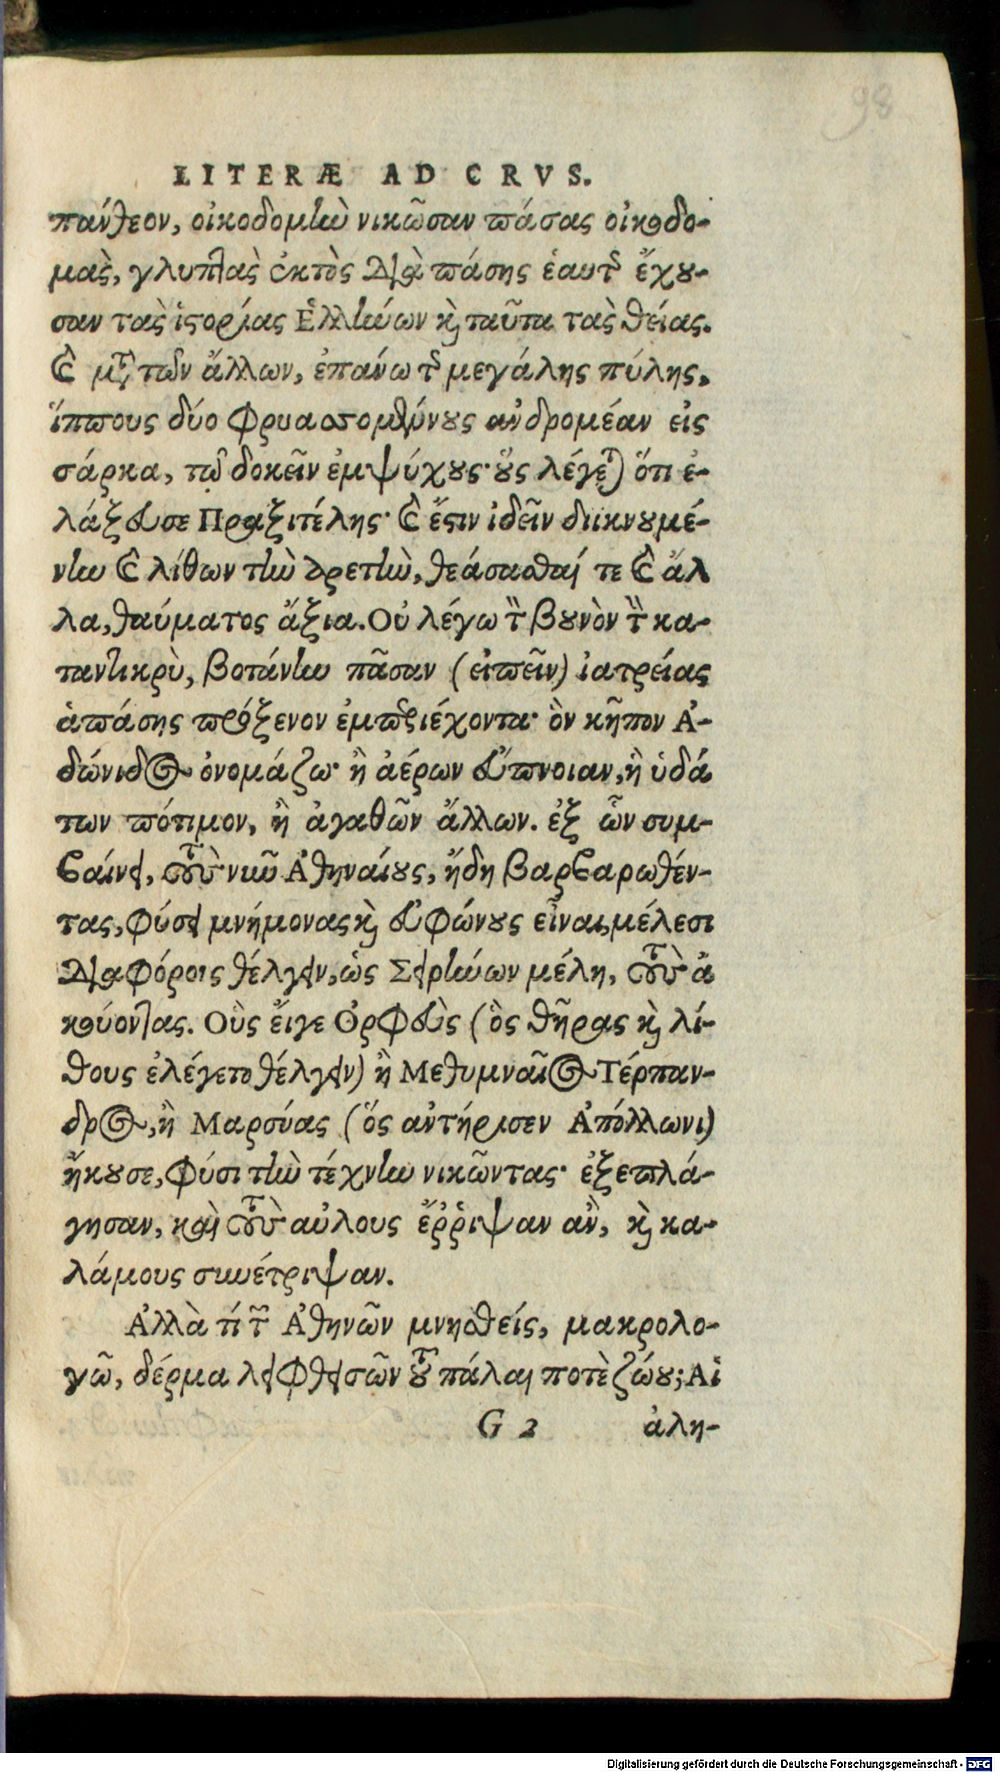 98
LITERÆ AD CRVS.
πάνθεον, οἰκοδομὴν νικῶσαν πάσας οἰκοδο-
μὰς, γλυπτὰς ἐκτὸς διὰ πάσης ἑαυτῆς ἔχου-
σαν τὰς ἱστορίας Ἑλλήνων καὶ ταῦτα τὰς θείας.
καὶ μετὰ τῶν ἄλλων, ἐπάνω τῆς μεγάλης πύλης,
ἵππους δύο φρυασσομένους ἀνδρομέαν εἰς
σάρκα, τῷ δοκεῖν ἐμψύχους· οὓς λέγεται ὅτι ἐ-
λάξευσε Πραξιτέλης· καὶ ἔστιν ἰδεῖν διικνουμέ-
νην καὶ λίθων τὴν ἀρετὴν, θεάσασθαί τε καὶ ἄλ
λα, θαύματος ἄξια. Οὐ λέγω τὸν βουνὸν τὸν κα-
ταντικρὺ, βοτάνην πᾶσαν (εἰπεῖν) ἰατρείας
ἁπάσης πρόξενον ἐμπεριέχοντα· ὃν κῆπον Ἀ-
δώνιδος ὀνομάζω· ἢ ἀέρων εὔπνοιαν, ἢ ὑδά
των πότιμον, ἢ ἀγαθῶν ἄλλων. ἐξ ὧν συμ-
βαίνει, τοὺς νῦν Ἀθηναίους, ἤδη βαρβαρωθέν-
τας, φύσει μνήμονας καὶ εὐφώνους εἶναι, μέλεσι
διαφόροις θέλγειν, ὡς Σειρήνων μέλη, τοὺς ἀ
κούοντας. Οὓς εἴγε Ὀρφεὺς (ὃς θῆρας καὶ λί-
θους ἐλέγετο θέλγειν) ἢ Μεθυμναῖος Τέρπαν-
δρος, ἢ Μαρσύας (ὅς ἀντήρισεν Ἀπόλλωνι)
ἤκουσε, φύσι τὴν τέχνην νικῶντας· ἐξεπλά-
γησαν, καὶ τοὺς αὐλους ἔῤῥιψαν ἂν, καὶ κα-
λάμους συνέτριψαν.
Ἀλλὰ τί τῶν Ἀθηνῶν μνησθείς, μακρολο-
γῶ, δέρμα λειφθεισῶν τοῦ πάλαι ποτὲ ζώου; Αἱ
G 2 ἀλη-
Digitalisierung gefördert durch die Deutsche Forschungsgemeinschaft - DFG